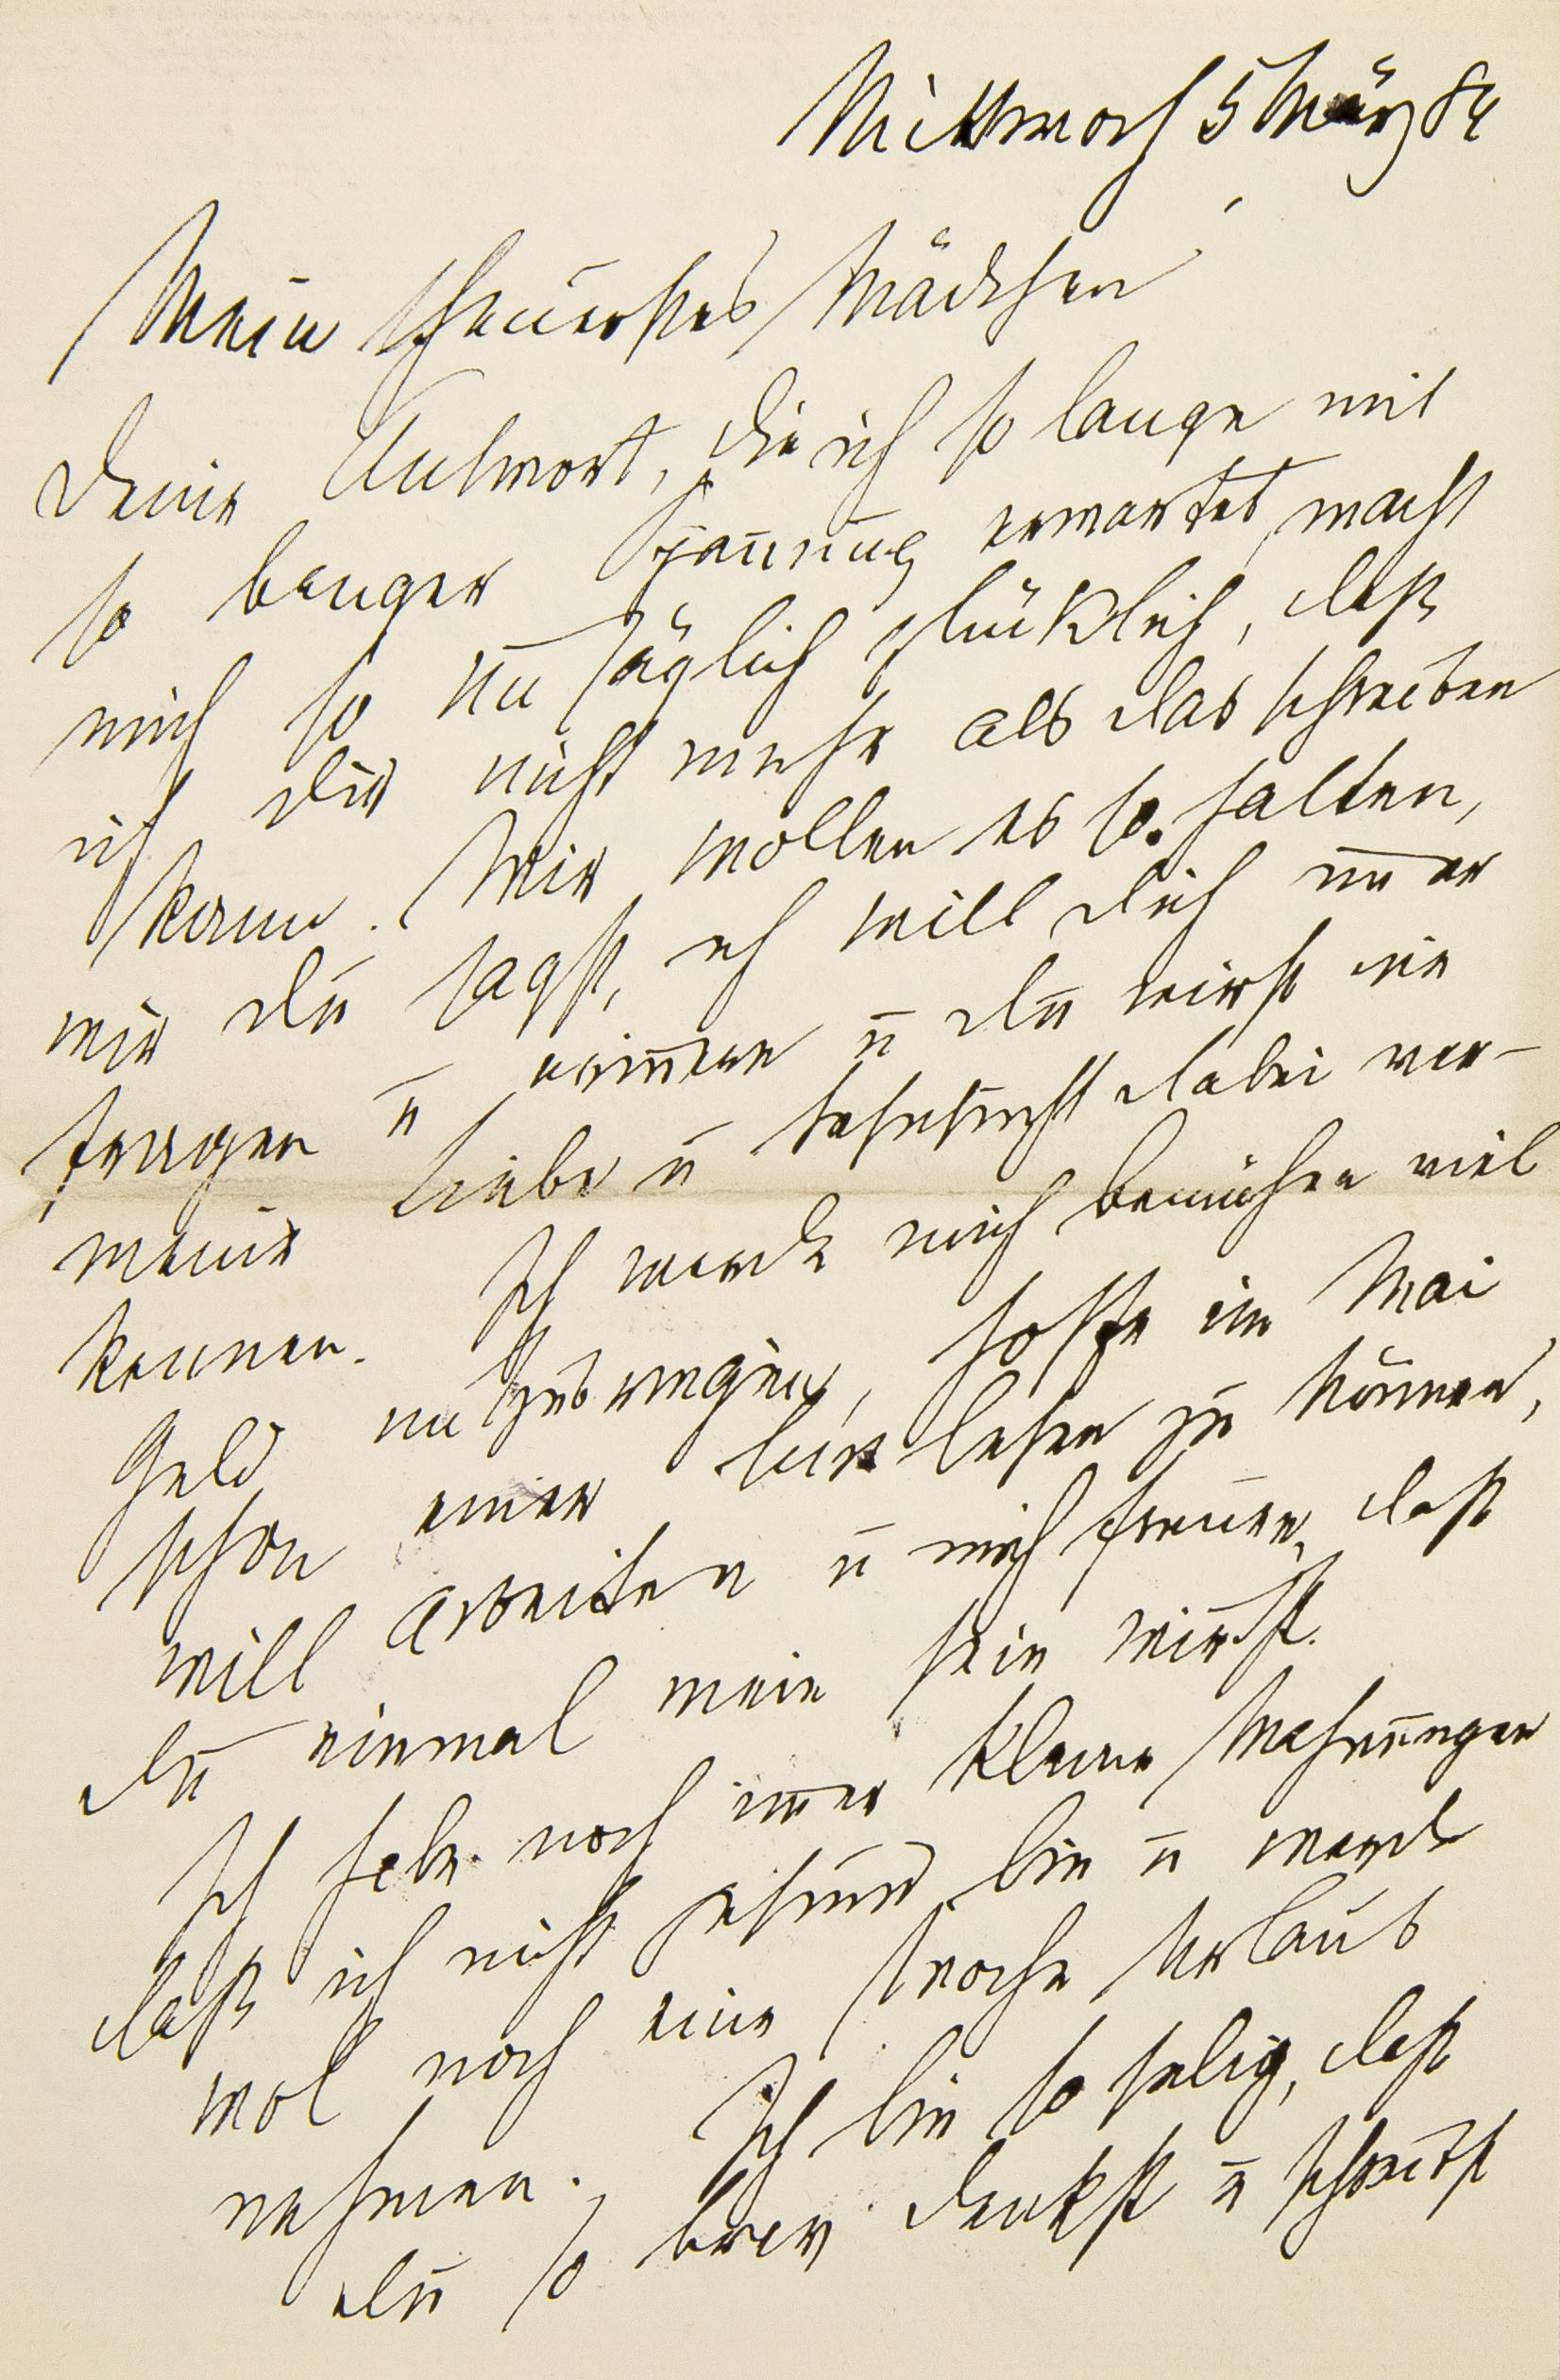 Mittwoch 5 März 84
Mein theuerstes Mädchen
Deine Antwort, die ich so lange mit
so banger Spannung erwartet, macht
mich so unsäglich glücklich, daß
ich dir nicht mehr als das schreiben
kann. Wir wollen es so halten,
wie du sagst, ich will dich immer
fragen u erinnern u du wirst nie
meine Liebe u Sehnsucht dabei ver-
kennen. Ich werde mich bemühen viel
Geld zu hoffe im Mai
schon einen Kurs lesen zu können,
will arbeiten u mich freuen, daß
du einmal mein sein wirst.
Ich habe noch immer kleine Mahnungen
daß ich nicht gesund bin u werde
wol noch eine Woche Urlaub
nehmen. Ich bin so selig, daß
du so brav denkst u schreibst